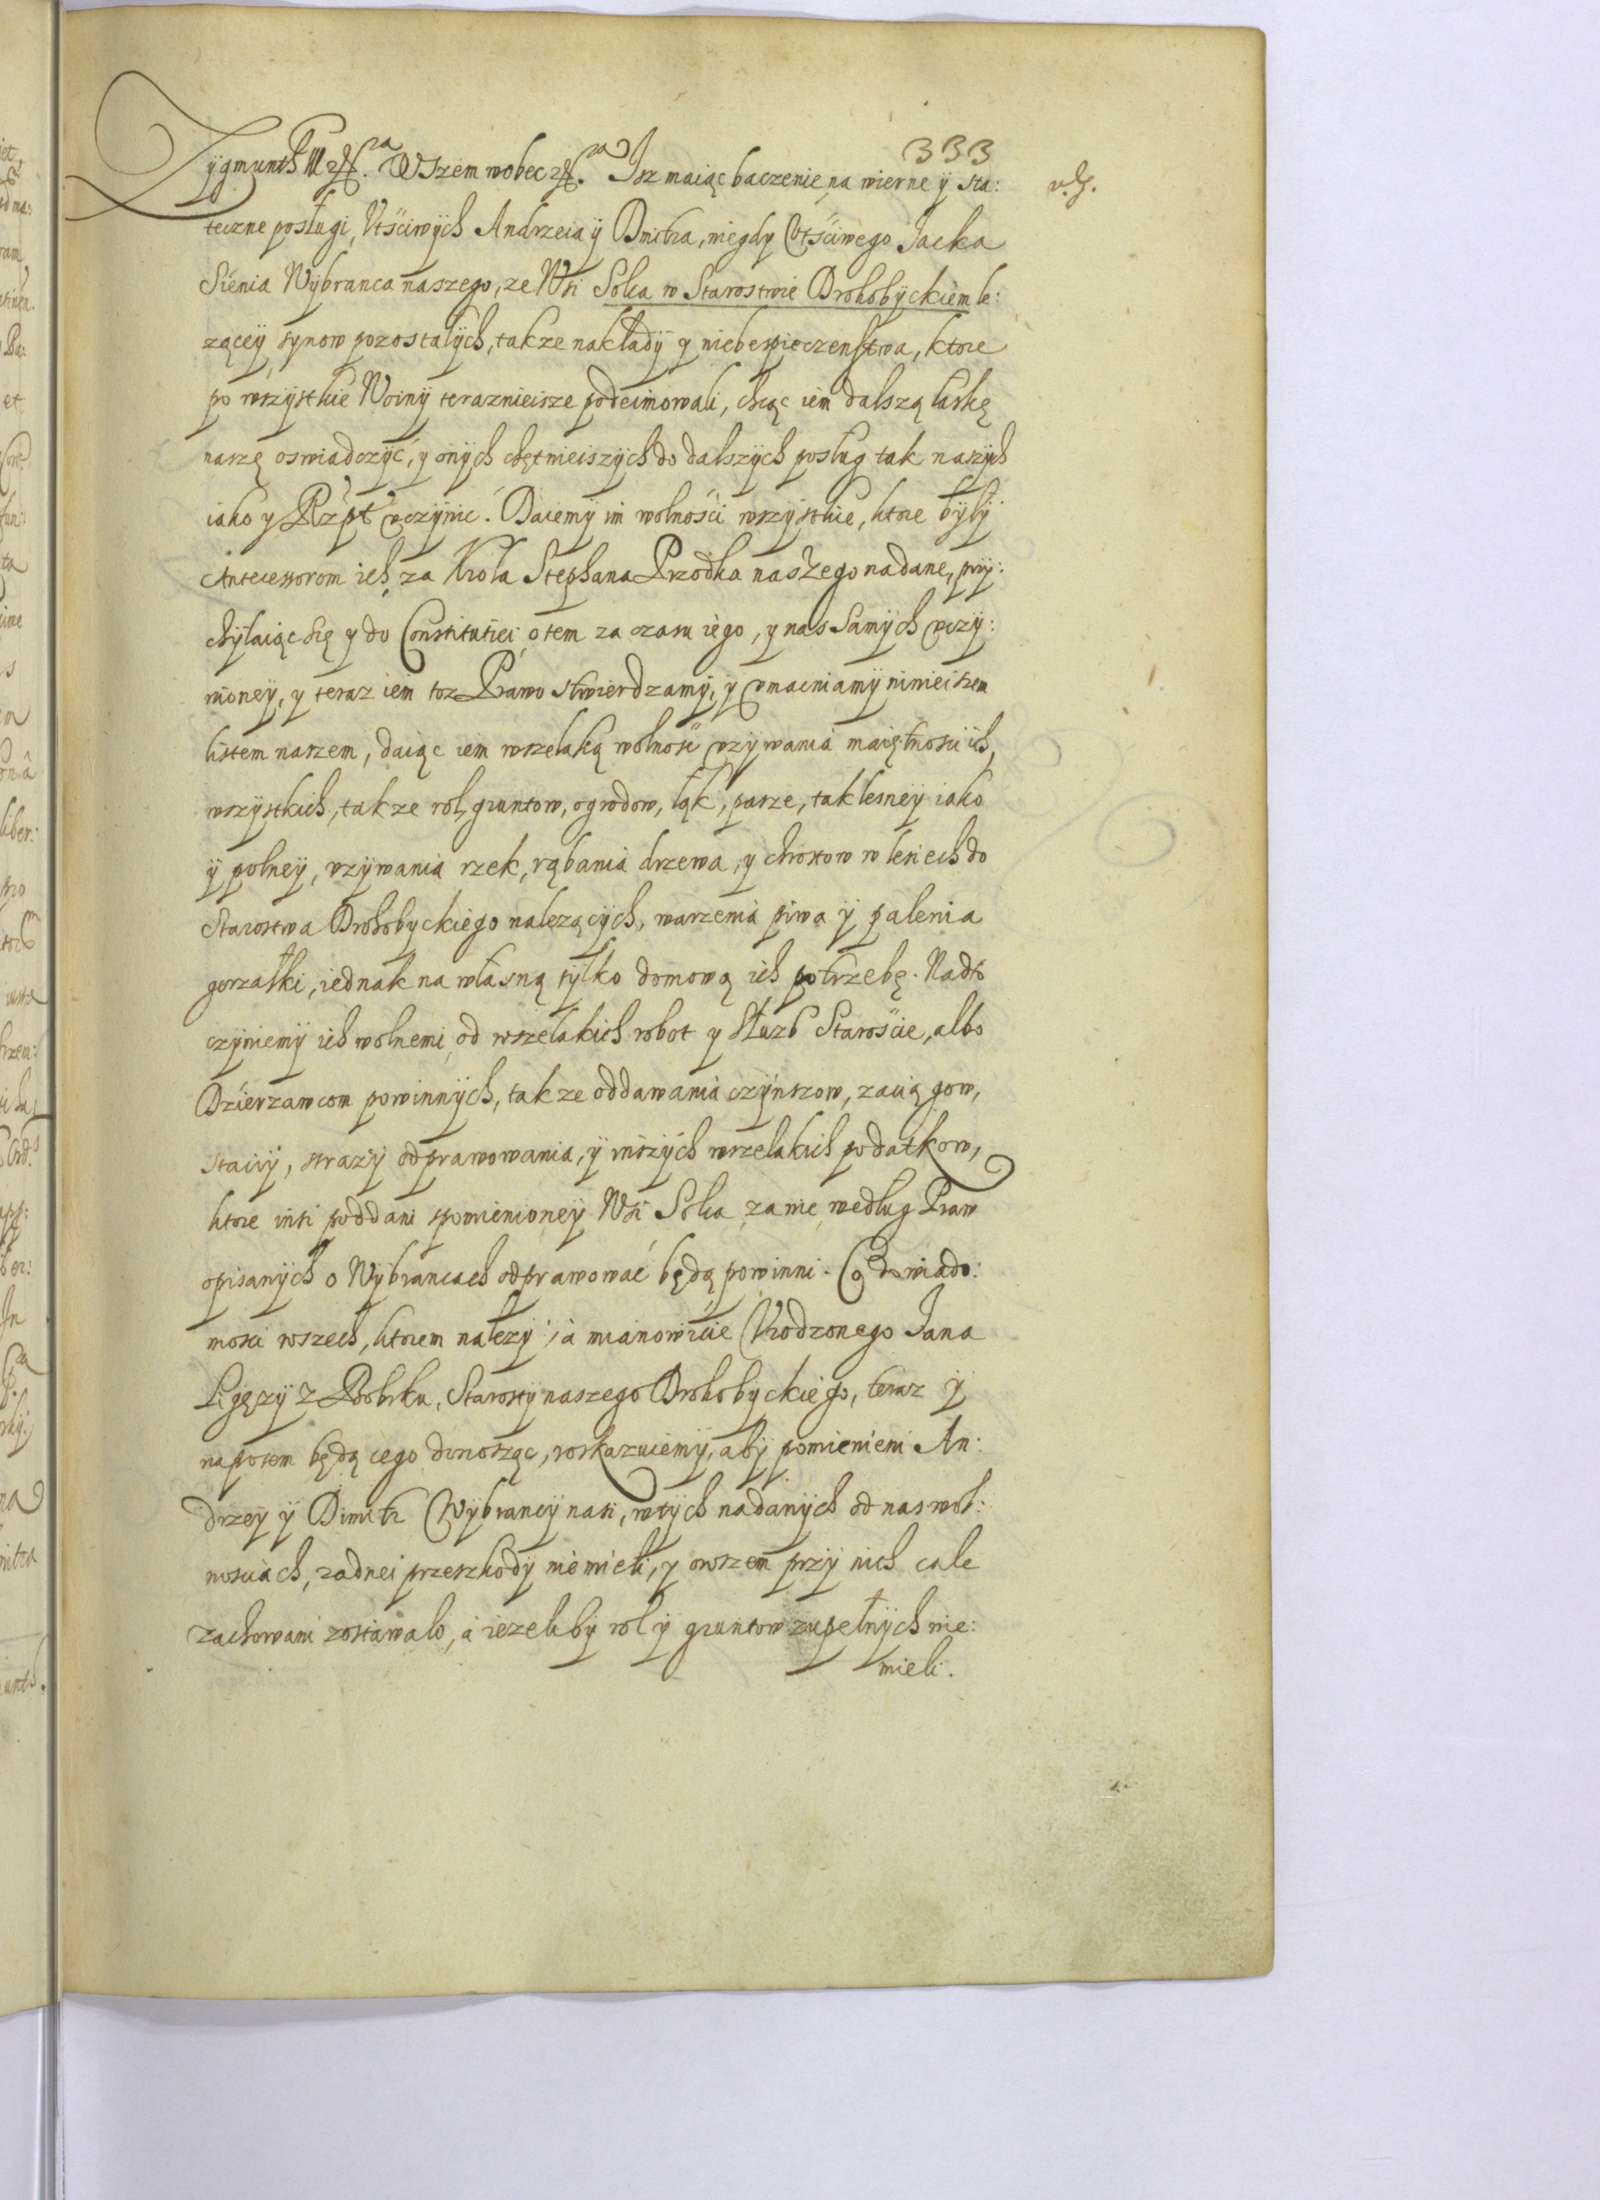 333
Zygmunth III etc. Wszem wobec etc. Isz maiąc baczenie na wierne ÿ sta:
teczne posługi, Vtściwÿch Andrzeia ÿ Dmitra, niegdy Vtściwego Jacka
Sienia Wÿbranca naszego, ze Wsi Solca w Starostwie Drohobÿckiem le:
zącÿ, synow pozostałÿch, takze nakładÿ y niebespieczenstwa, ktore
po wszÿstkie Woinÿ teraznieisze podeimowali, chcąc iem dalszą łaskę
naszę oswiadczÿć, y onÿch chętnieiszÿch do dalszÿch posług tak naszÿch
iako y Rzpt vczÿnić. Daiemÿ im wolności wszÿstkie, ktore bÿłÿ
Antecessorom ich, za Krola Stephana Przodka naszego nadane, przÿ:
chÿlaiąc się y do Constitutiei, o tem za czasu iego, y nas samÿch vczÿ:
nioneÿ, y teraz iem toz Prawo stwierdzamÿ, y vmacniamÿ ninieiszem
listem naszem, daiąc iem wszelaką wolność vzÿwania maiętnosci ich,
wszÿstkich, takze rol, gruntow, ogrodow, łąk, pasze, tak lesneÿ iako
ÿ polneÿ, vzÿwania rzek, rąbania drzewa, y chrostow w lesiech do
Starostwa Drohobyckiego nalezącÿch, warzenia piwa ÿ palenia
gorzałki, iednak na własną tÿlko domową ich potrzebę. Nadto
czÿniemÿ ich wolnemi, od wszelakich robot y słuzb Staroście, albo
Dzierzawcom powinnÿch, takze oddawania czÿnszow, zaciągow,
staciÿ, strazÿ odprawowania, y inszÿch wszelakich podatkow,
ktore insi poddani spomienioneÿ Wsi Solca za nie, według Praw
opisanÿch o Wÿbrancach odprawować będą powinni. Co do wiado:
mosci wszech, ktorem nalezÿ, a mianowicie Vrodzonego Jana
Ligęzÿ z Bobrku, Starostÿ naszego Drohobyckiego, teraz ÿ
napotem będącego donosząc, roskazuiemÿ, abÿ pomienieni An:
drzeÿ ÿ Dimitr Wÿbrancÿ nasi, w tÿch nadanÿch od nas wol:
nosciach, zadnei przeszkodÿ nie mieli, y owszem przÿ nich cale
zachowani zostawalo, a iezelibÿ rol ÿ gruntow zupełnÿch nie:
mieli.